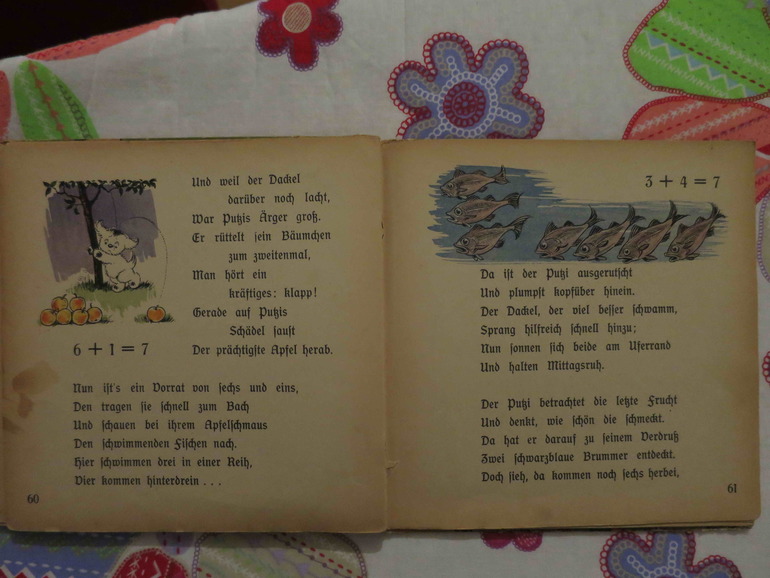 Und weil der Dackel
darüber noch lacht,
War Putzis Ärger groß.
Er rüttelt sein Bäumchen
zum zweitenmal,
Man hört ein
kräftiges: klapp!
Gerade auf Putzis
Schädel saust
Der prächtigste Apfel herab.
6 + 1 = 7
Nun ist's ein Vorrat von sechs und eins,
Den tragen sie schnell zum Bach
Und schauen bei ihrem Apfelschmaus
Den schwimmenden Fischen nach.
Hier schwimmen drei in einer Reih,
Vier kommen hinterdrein . . .
60
3 + 4 = 7
Da ist der Putzi ausgerutscht
Und plumpst kopfüber hinein.
Der Dackel, der viel besser schwamm,
Sprang hilfreich schnell hinzu;
Nun sonnen sich beide am Uferrand
Und halten Mittagsruh.
Der Putzi betrachtet die letzte Frucht
Und denkt, wie schön die schmeckt.
Da hat er darauf zu seinem Verdruß
Zwei schwarzblaue Brummer entdeckt.
Doch sieh, da kommen noch sechs herbei,
61